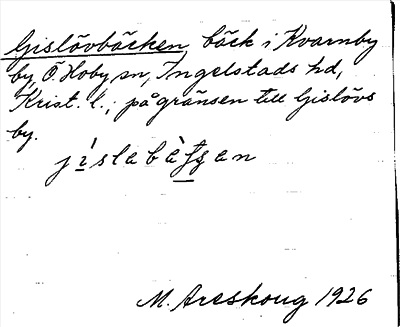 Gislövbäcken, bäck i Kvarnby
by Ö. Hoby sn, Ingelstads hd,
Krist. l., på gränsen till Gislövs
by.
M. Areskoug 1926